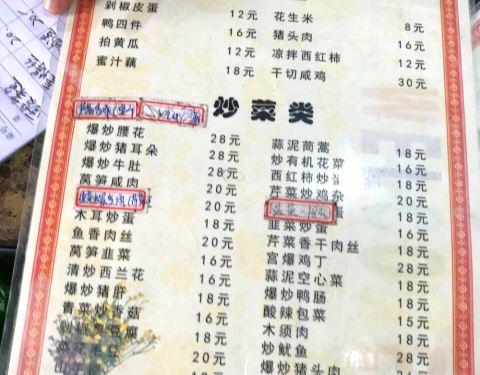 剁椒皮蛋 12元
鸭四件 16元
拍黄瓜 12元
蜜汁藕 18元
花生米 8元
猪头肉 16元
凉拌西红柿 12元
干切咸鸡 30元
炒菜类
爆炒腰花 28元
爆炒猪耳朵 28元
爆炒牛肚 28元
莴笋咸肉 20元
20元
木耳炒蛋 18元
鱼香肉丝 20元
莴笋韭菜 16元
清炒西兰花 16元
爆炒猪肝 18元
青菜炒香菇 16元
18元
20元
蒜泥茼蒿 18元
炒有机花菜 16元
西红柿炒蛋 18元
芹菜炒鸡杂 20元
蛋 18元
韭菜炒蛋 16元
芹菜香干肉丝 18元
宫爆鸡丁 28元
蒜泥空心菜 16元
爆炒鸭肠 18元
酸辣包菜 15元
木须肉 18元
炒鱿鱼 28元
爆炒猪头肉 16元